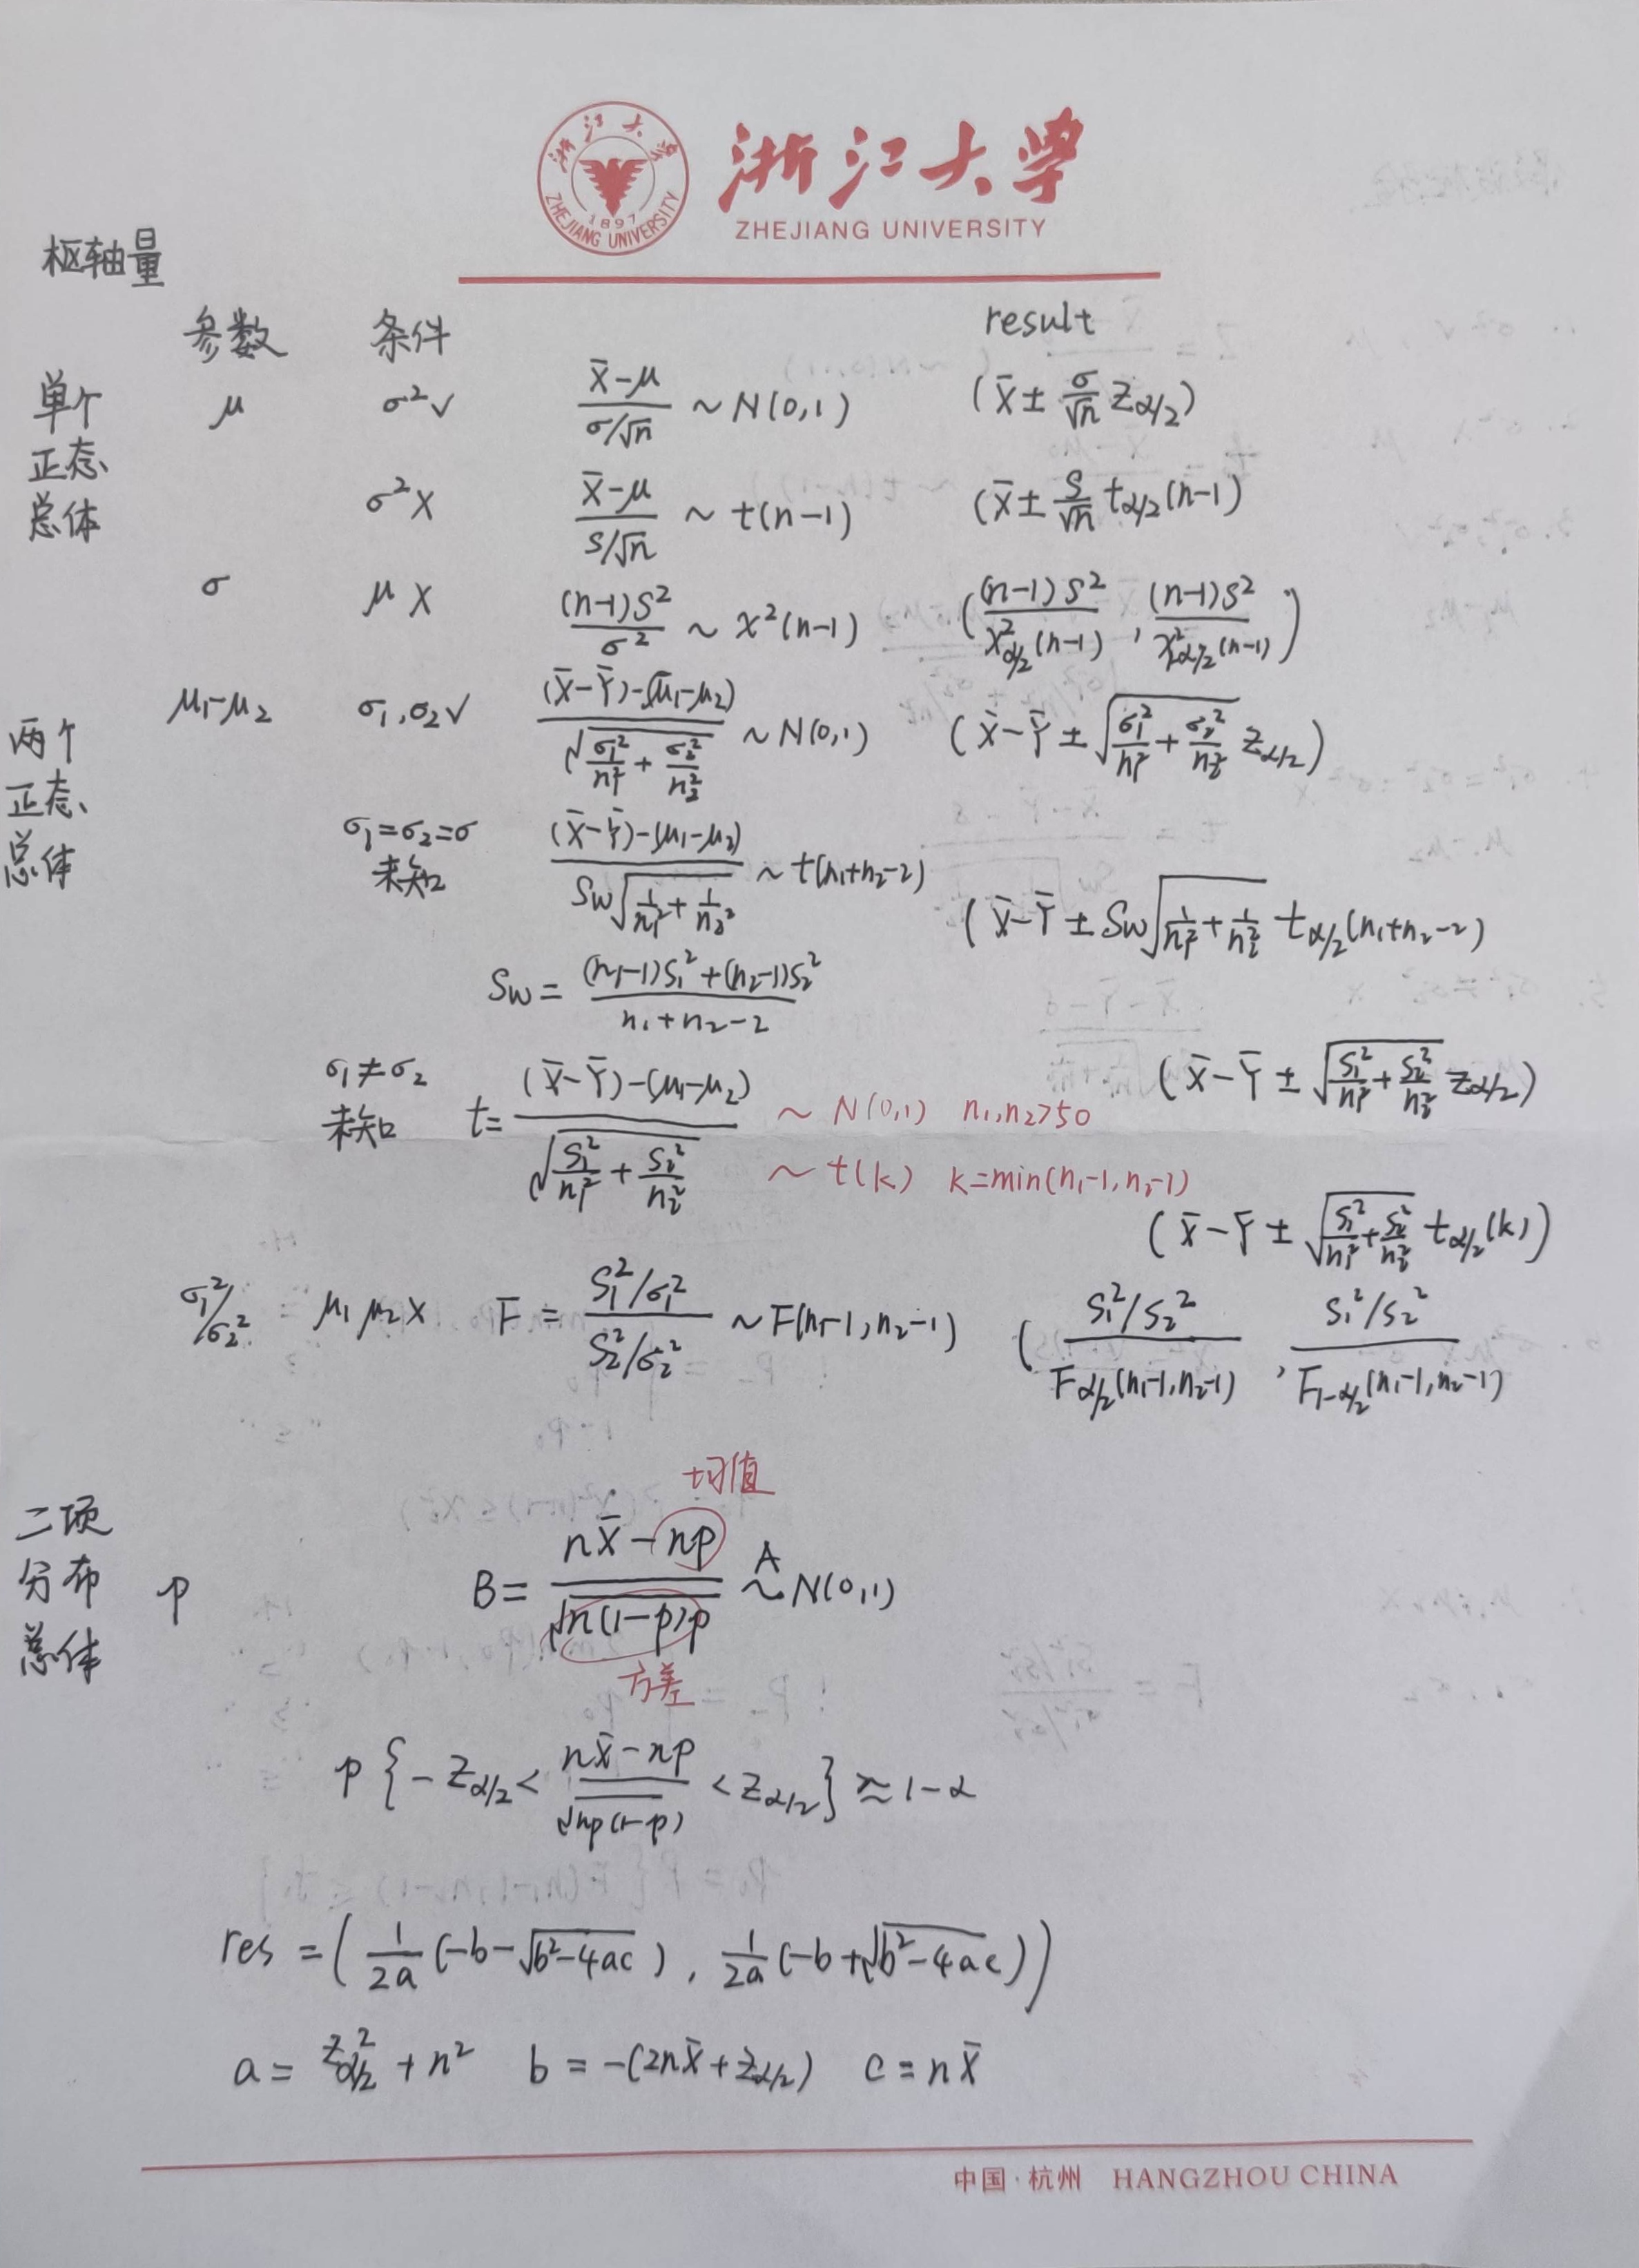 浙江大学
ZHEJIANG UNIVERSITY
浙江大学 1897 ZHEJIANG UNIVERSITY
枢轴量
参数 条件 result
单个正态总体 μ σ²√ (X̄-μ)/(σ/√n) ~ N(0,1) (X̄ ± σ/√n Z_{α/2})
σ²X (X̄-μ)/(S/√n) ~ t(n-1) (X̄ ± S/√n t_{α/2}(n-1)
σ μ X (n-1)S²/σ² ~ χ²(n-1) ((n-1)S²/χ²_{α/2}(n-1), (n-1)S²/χ²_{1-α/2}(n-1))
两个正态总体 μ₁-μ₂ σ₁,σ₂√ ((X̄-Ȳ)-(μ₁-μ₂))/√(σ₁²/n₁²+σ₂²/n₂²) ~ N(0,1) (X̄-Ȳ ± √(σ₁²/n₁²+σ₂²/n₂²) Z_{α/2})
σ₁=σ₂=σ 未知 ((X̄-Ȳ)-(μ₁-μ₂))/(Sw√(1/n₁²+1/n₂²)) ~ t(n₁+n₂-2)
(X̄-Ȳ ± Sw√(1/n₁²+1/n₂²) t_{α/2}(n₁+n₂-2)
Sw = ((n₁-1)S₁²+(n₂-1)S₂²)/(n₁+n₂-2)
σ₁≠σ₂ 未知 t= ((X̄-Ȳ)-(μ₁-μ₂))/√(S₁²/n₁²+S₂²/n₂²) ~ N(0,1) n₁,n₂>50 (X̄-Ȳ ± √(S₁²/n₁²+S₂²/n₂²) Z_{α/2})
~ t(k) k=min(n₁-1,n₂-1)
(X̄-Ȳ ± √(S₁²/n₁²+S₂²/n₂²) t_{α/2}(k))
σ₁²/σ₂² μ₁ μ₂ X F = (S₁²/σ₁²)/(S₂²/σ₂²) ~ F(n₁-1,n₂-1) ((S₁²/S₂²)/F_{α/2}(n₁-1,n₂-1), (S₁²/S₂²)/F_{1-α/2}(n₁-1,n₂-1)
均值
二项分布总体 p B= (nX̄-np)/√(n(1-p)p) ~ᴬ N(0,1)
方差
p{-Z_{α/2} < (nX̄-np)/√(np(1-p)) < Z_{α/2}} ≈ 1-α
res = (1/2a (-b-√(b²-4ac)), 1/2a (-b+√(b²-4ac)))
a = Z²_{α/2} + n² b = -(2nX̄+Z_{α/2}) c = nX̄
中国·杭州 HANGZHOU CHINA